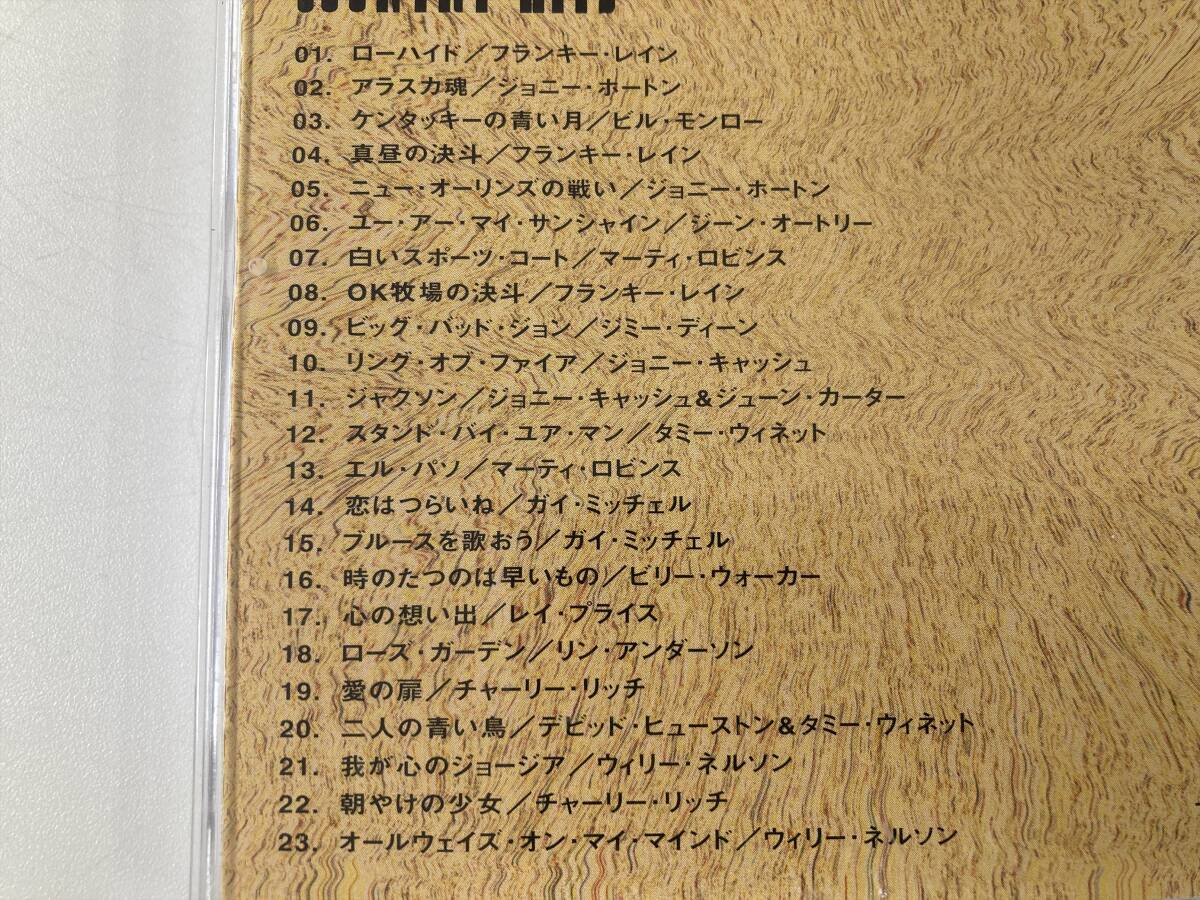 COUNTRY HITS
01. ローハイド／フランキー・レイン
02. アラスカ魂／ジョニー・ホートン
03. ケンタッキーの青い月／ビル・モンロー
04. 真昼の決斗／フランキー・レイン
05. ニュー・オーリンズの戦い／ジョニー・ホートン
06. ユー・アー・マイ・サンシャイン／ジーン・オートリー
07. 白いスポーツ・コート／マーティ・ロビンス
08. OK牧場の決斗／フランキー・レイン
09. ビッグ・バッド・ジョン／ジミー・ディーン
10. リング・オブ・ファイア／ジョニー・キャッシュ
11. ジャクソン／ジョニー・キャッシュ&ジューン・カーター
12. スタンド・バイ・ユア・マン／タミー・ウィネット
13. エル・パソ／マーティ・ロビンス
14. 恋はつらいね／ガイ・ミッチェル
15. ブルースを歌おう／ガイ・ミッチェル
16. 時のたつのは早いもの／ビリー・ウォーカー
17. 心の想い出／レイ・プライス
18. ローズ・ガーデン／リン・アンダーソン
19. 愛の扉／チャーリー・リッチ
20. 二人の青い鳥／デビッド・ヒューストン&タミー・ウィネット
21. 我が心のジョージア／ウィリー・ネルソン
22. 朝やけの少女／チャーリー・リッチ
23. オールウェイズ・オン・マイ・マインド／ウィリー・ネルソン